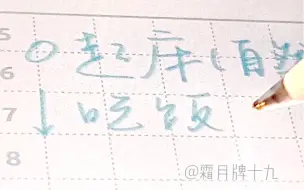 5
○起床(自
6
7 ↓吃饭
8
@霜月牌十九